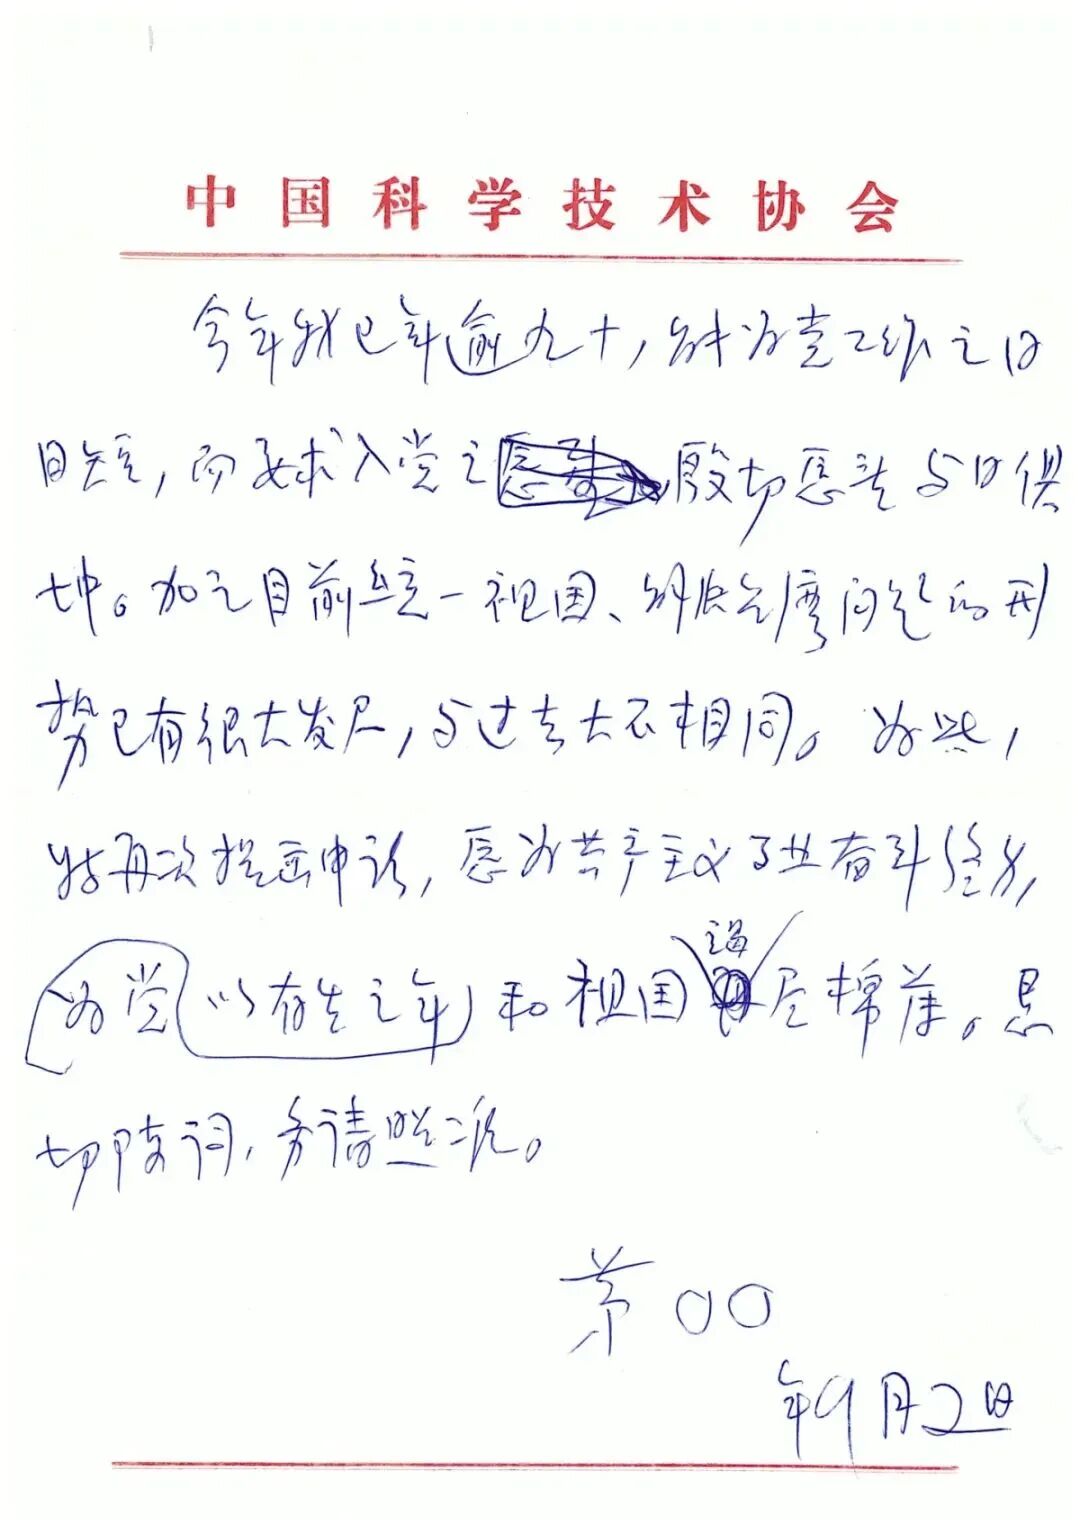 中国科学技术协会
今年我已年逾九十，能为党工作之日
日短，而要求入党之殷切愿望与日俱
增。加之目前统一祖国、解决台湾问题的形
势已有很大发展，与过去大不相同。为此，
特再次提出申请，愿为共产主义事业奋斗终身，
为党以有生之年和祖国尽棉薄。恳
切陈词，务请照准。
茅〇〇
年9月2日